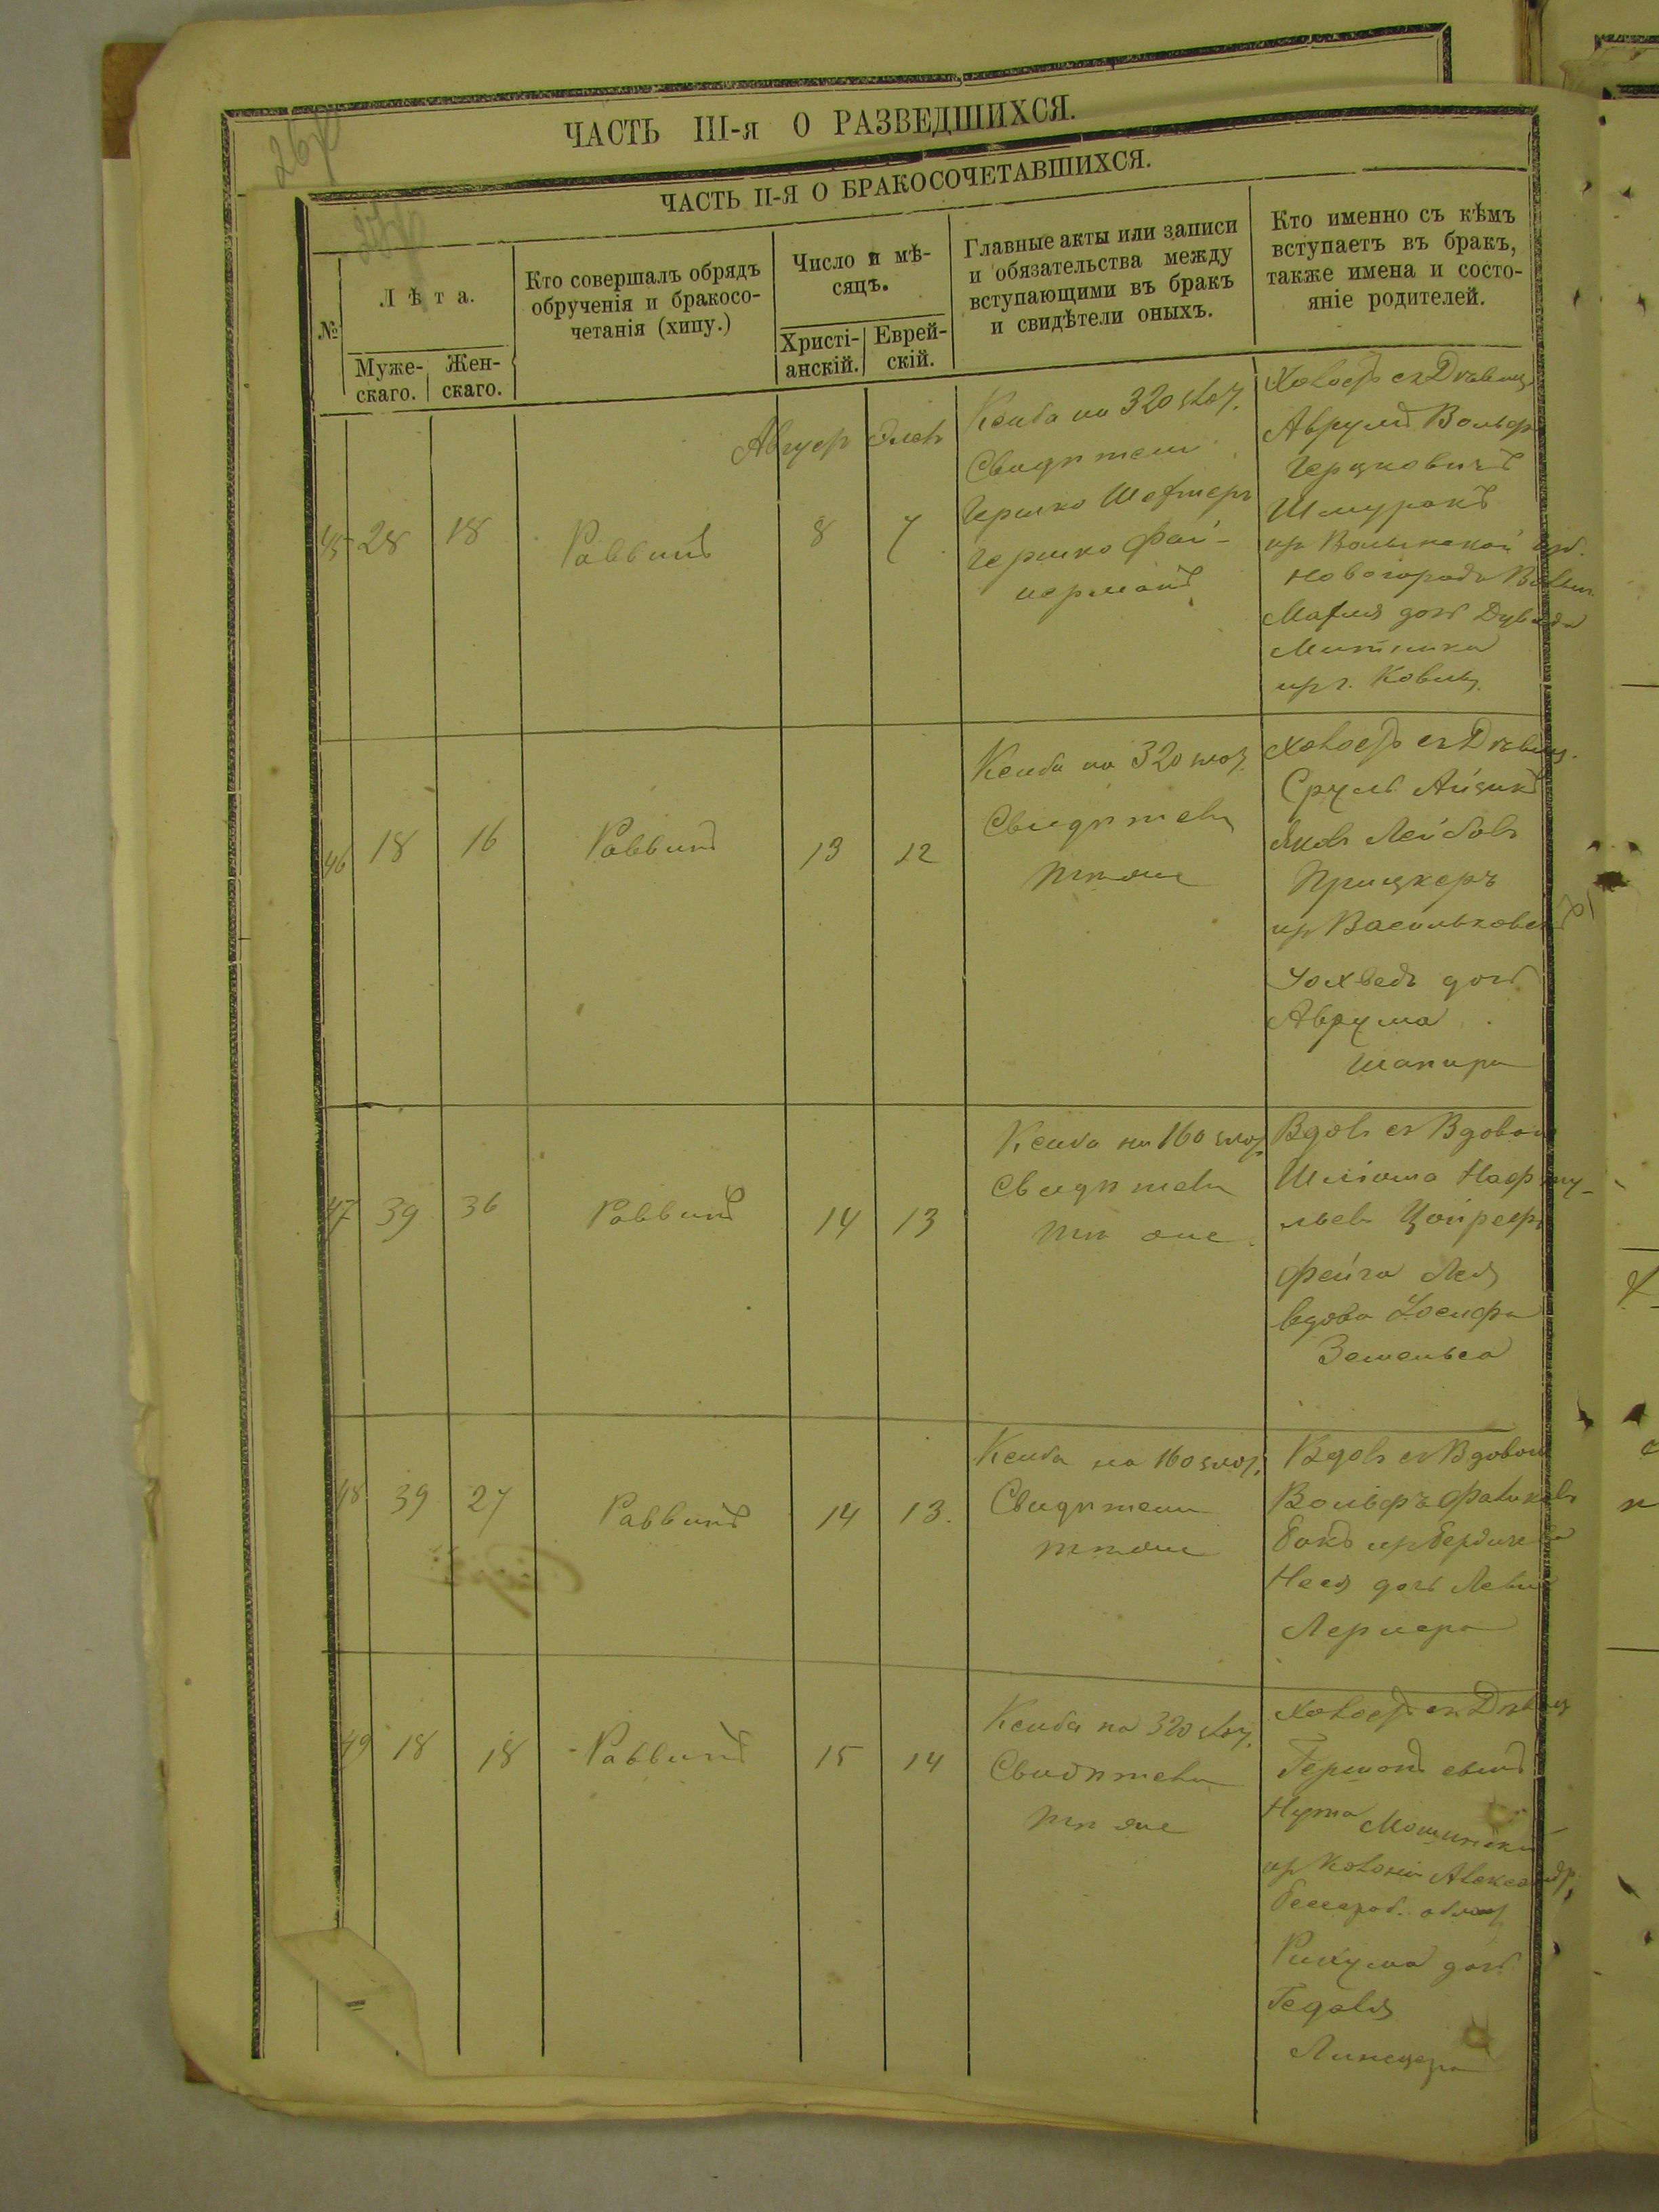 ЧАСТЬ III-я О РАЗВЕДШИХСЯ.
ЧАСТЬ II-Я О БРАКОСОЧЕТАВШИХСЯ.
№
Лѣта.
Муже-
скаго.
Жен-
скаго.
Кто совершалъ обрядъ
обрученія и бракосо-
четанія (хипу.)
Число и мѣ-
сяцъ.
Христі-
анскій.
Еврей-
скій.
Главные акты или записи
и обязательства между
вступающими въ бракъ
и свидѣтели оныхъ.
Кто именно съ кѣмъ
вступаетъ въ бракъ,
также имена и состо-
яніе родителей.
Август Элев
45 28 18 Раввинъ 8 7
Ксиба на 320 злот.
Свидѣтели
Гершко
Гершко Фай-
нерманъ
Холост съ Дѣвиц
Аврумъ Вольф
Герцковичъ
Шмуракъ
из Волынской губ.
Новогорода Волын.
Матля дочь Дувида
Митника
из г.
46 18 16 Раввинъ 13 12
Ксиба на 320 злот.
Свидѣтели
тѣже
Холост съ Дѣвиц.
Сруль Айзикъ
Янов Лейбов
Прицкеръ
из Васильков
Юхведъ дочь
Аврума
Шапира
47 39 36 Раввинъ 14 13
Ксиба на 160 злот.
Свидѣтели
тѣ же
Вдов съ Вдовою
Шліома Нафту-
льев
Фейга Лея
вдова Іосифа
48 39 27 Раввинъ 14 13.
Ксиба на 160 злот.
Свидѣтели
тѣже
Вдов съ Вдовою
Вольфъ
Бакъ из Бердичева
Неся дочь Левы
Лернера
49 18 18 Раввинъ 15 14
Ксиба на 320 злот.
Свидѣтели
тѣ же
Холост съ Дѣвиц
Гершонъ сынъ
Нута
из Колоніи Александр.
Бессараб. област
дочь
Гедаля
Линецера